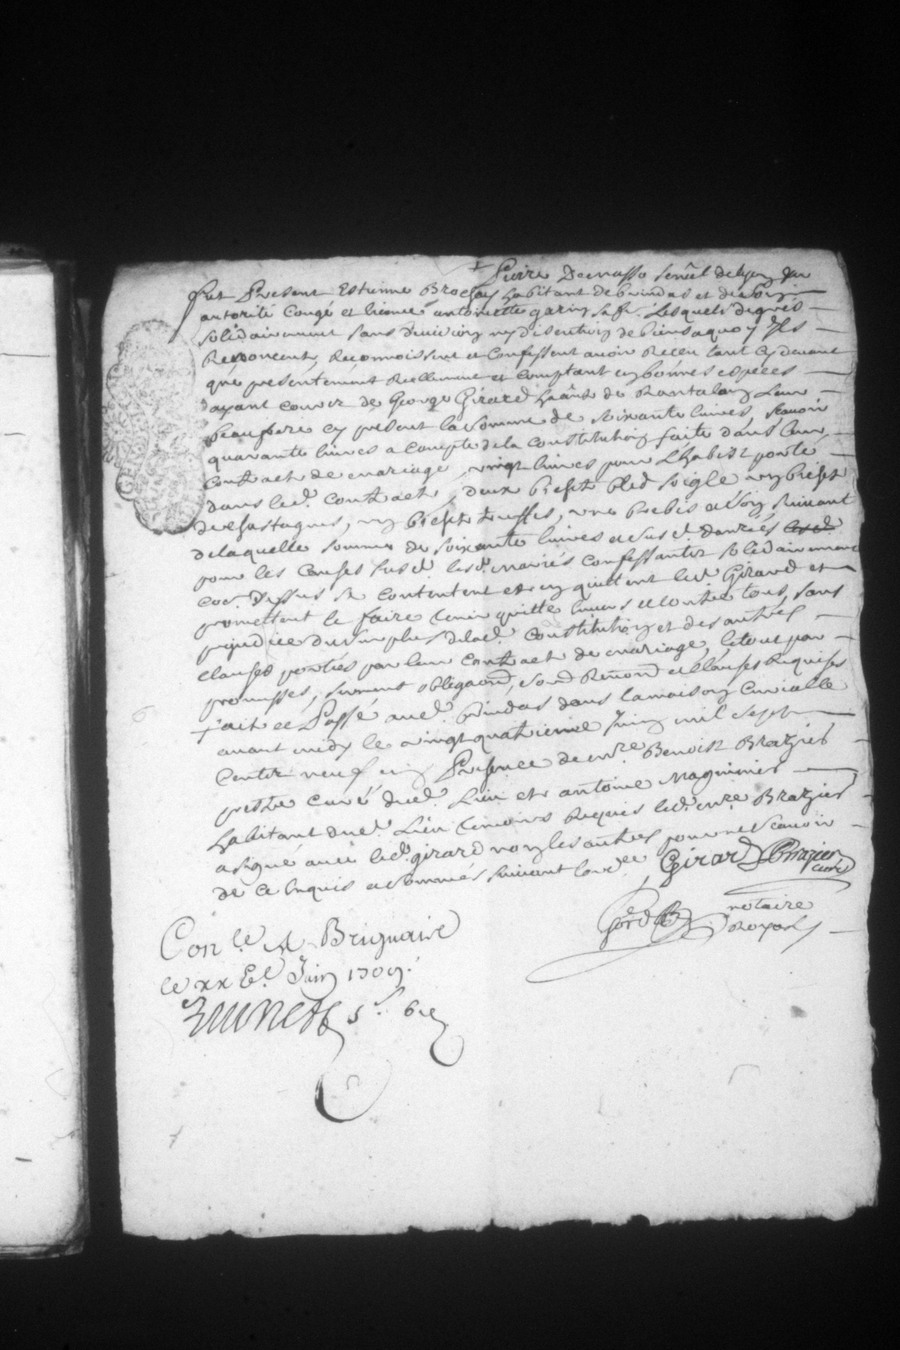 fut Present Estienne Brochay habitant de brindas et de Luy
autorité Congé et licence antoinette garin sa fe. Lesquels de grés
solidairement sans division ny discution de biens a quoy Ils
Renoncent, Reconnoissent et Confessent avoir Receu tant Cy devant
que présentement Réellement et Comptant en bonnes espèces
ayant Cours de George Girard habitant de Rantalon Leur
beau pere cy présent la somme de soixante livres, scavoir
quarante livres a Compte de la Constitution faite dans leur
Contract de mariage, vingt livres pour L'habist porté
dans led. Contract, deux bichet bled soigle un bichet
de chastagnes, un bichet truffes, une brebis
de laquelle somme de soixante livres et susd. danrées
pour les Causes susd. lesd. mariés Confessants solidairement
Coe. Dessus se Contentent et en quittent led. Girard et
promettent le faire tenir quitte envers et Contre tous, sans
préjudice du surplus de lad. Constitution et des autres
clauses portées par leur Contract de mariage, le tout par
promesses, serment obligaon, Renond et Clauses Requises
fait et Passé aud. Brindas dans la maison Curialle
avant midy le vingt quatrieme Juin mil sept
Cents neuf en Presence de mre. Benoist Brazier
prestre Curé dud. Lieu et antoine Maguinier
habitant dud. Lieu temoins Requis led. mre Brazier
a signé avec led. girard non les autres pour ne scavoir
de Ce Enquis et sommés suivant Lord.ce
Girard Brazier
curé
notaire
Royal
Con.le A Brignaire
le xx E. Juin 1709.